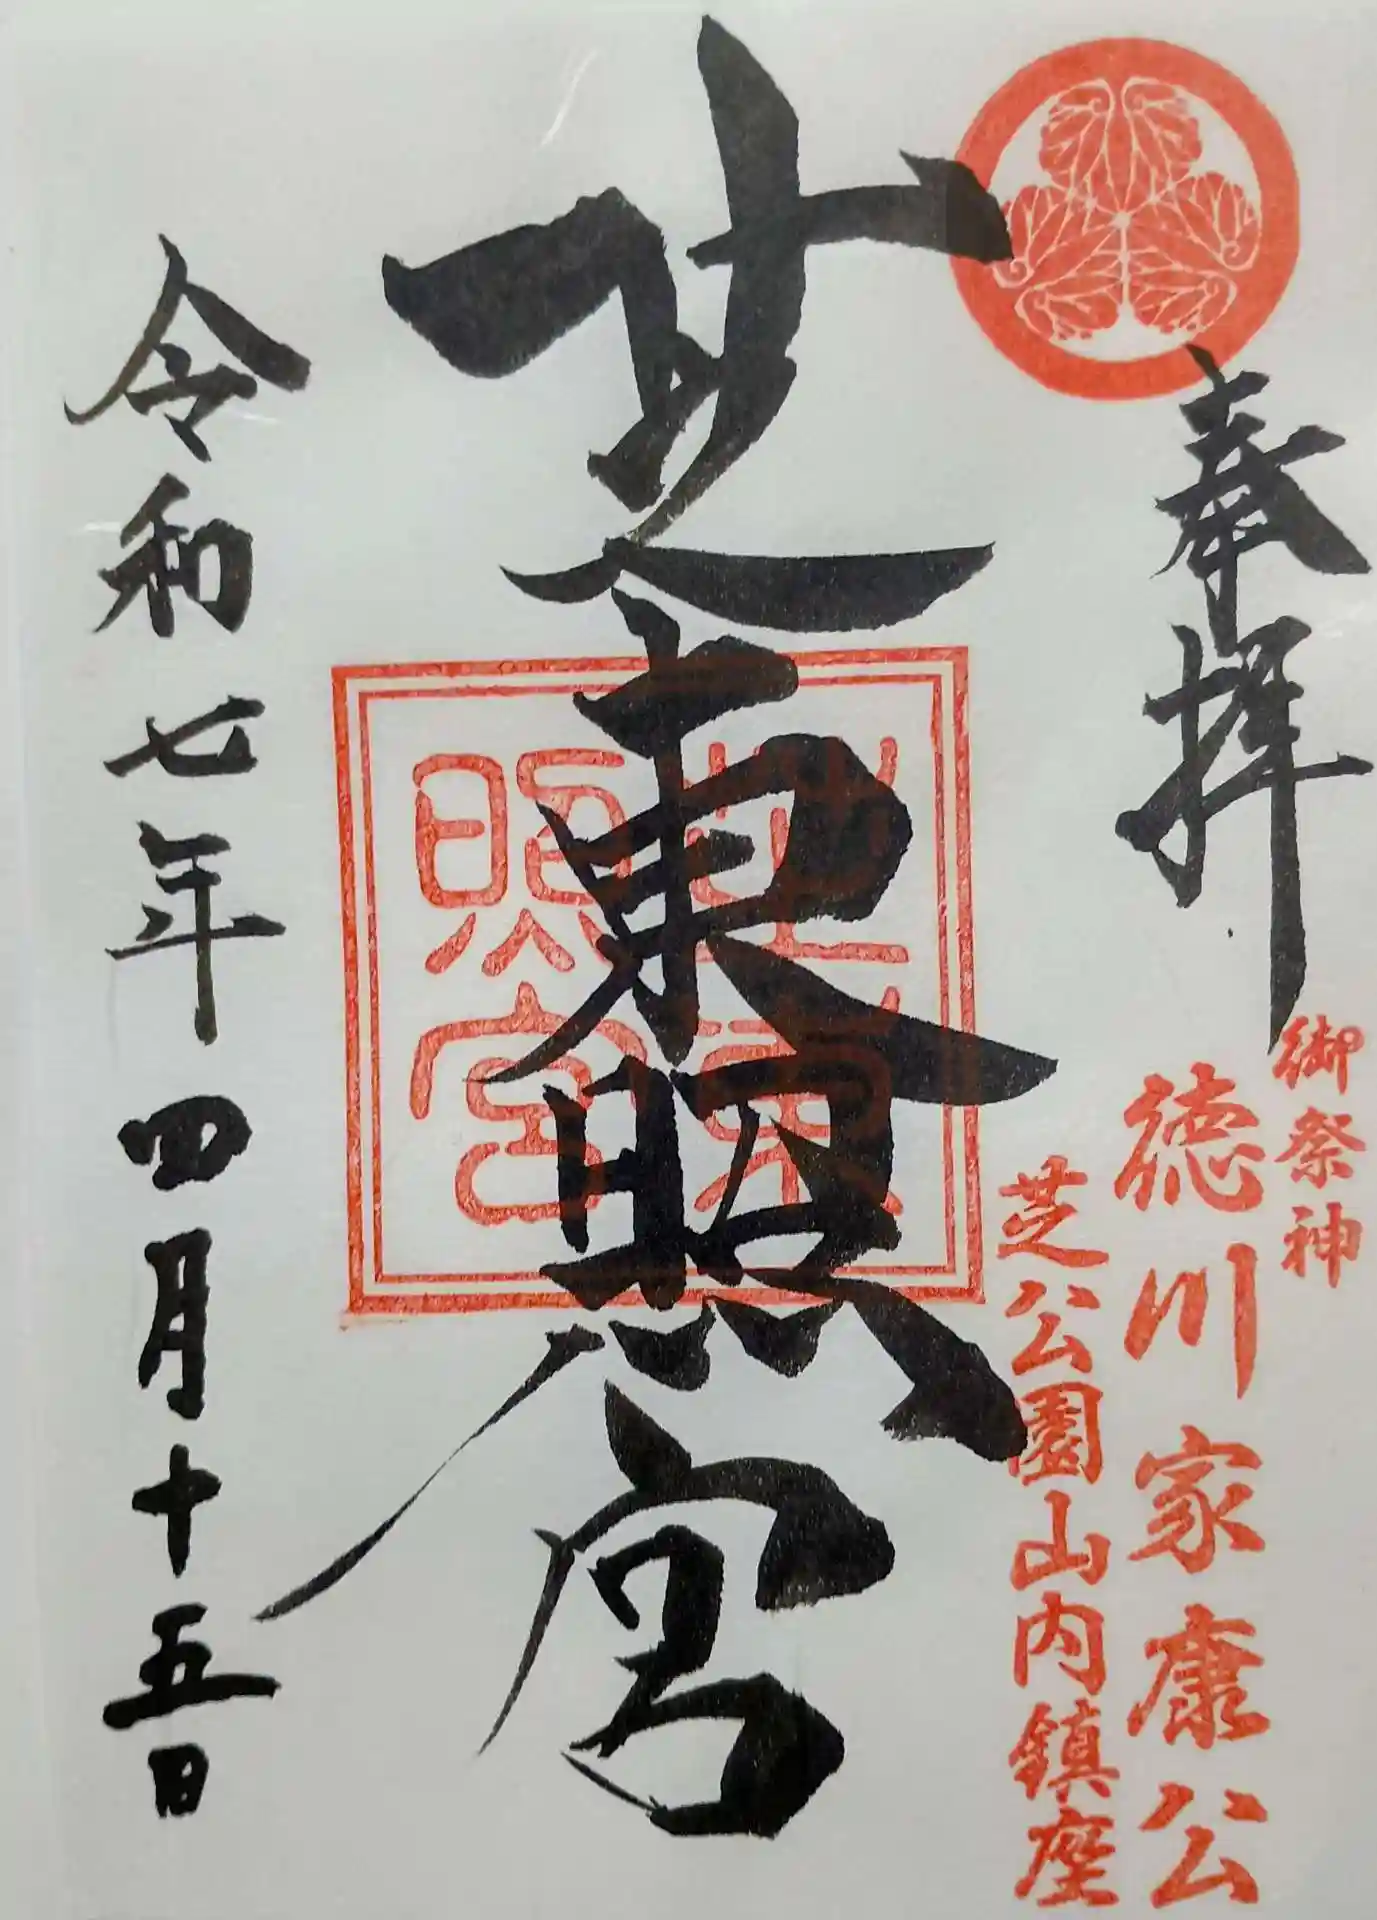 奉拝
御祭神
徳川家康公
芝公園山内鎮座
芝東照宮
芝東
照宮
令和七年四月十五日